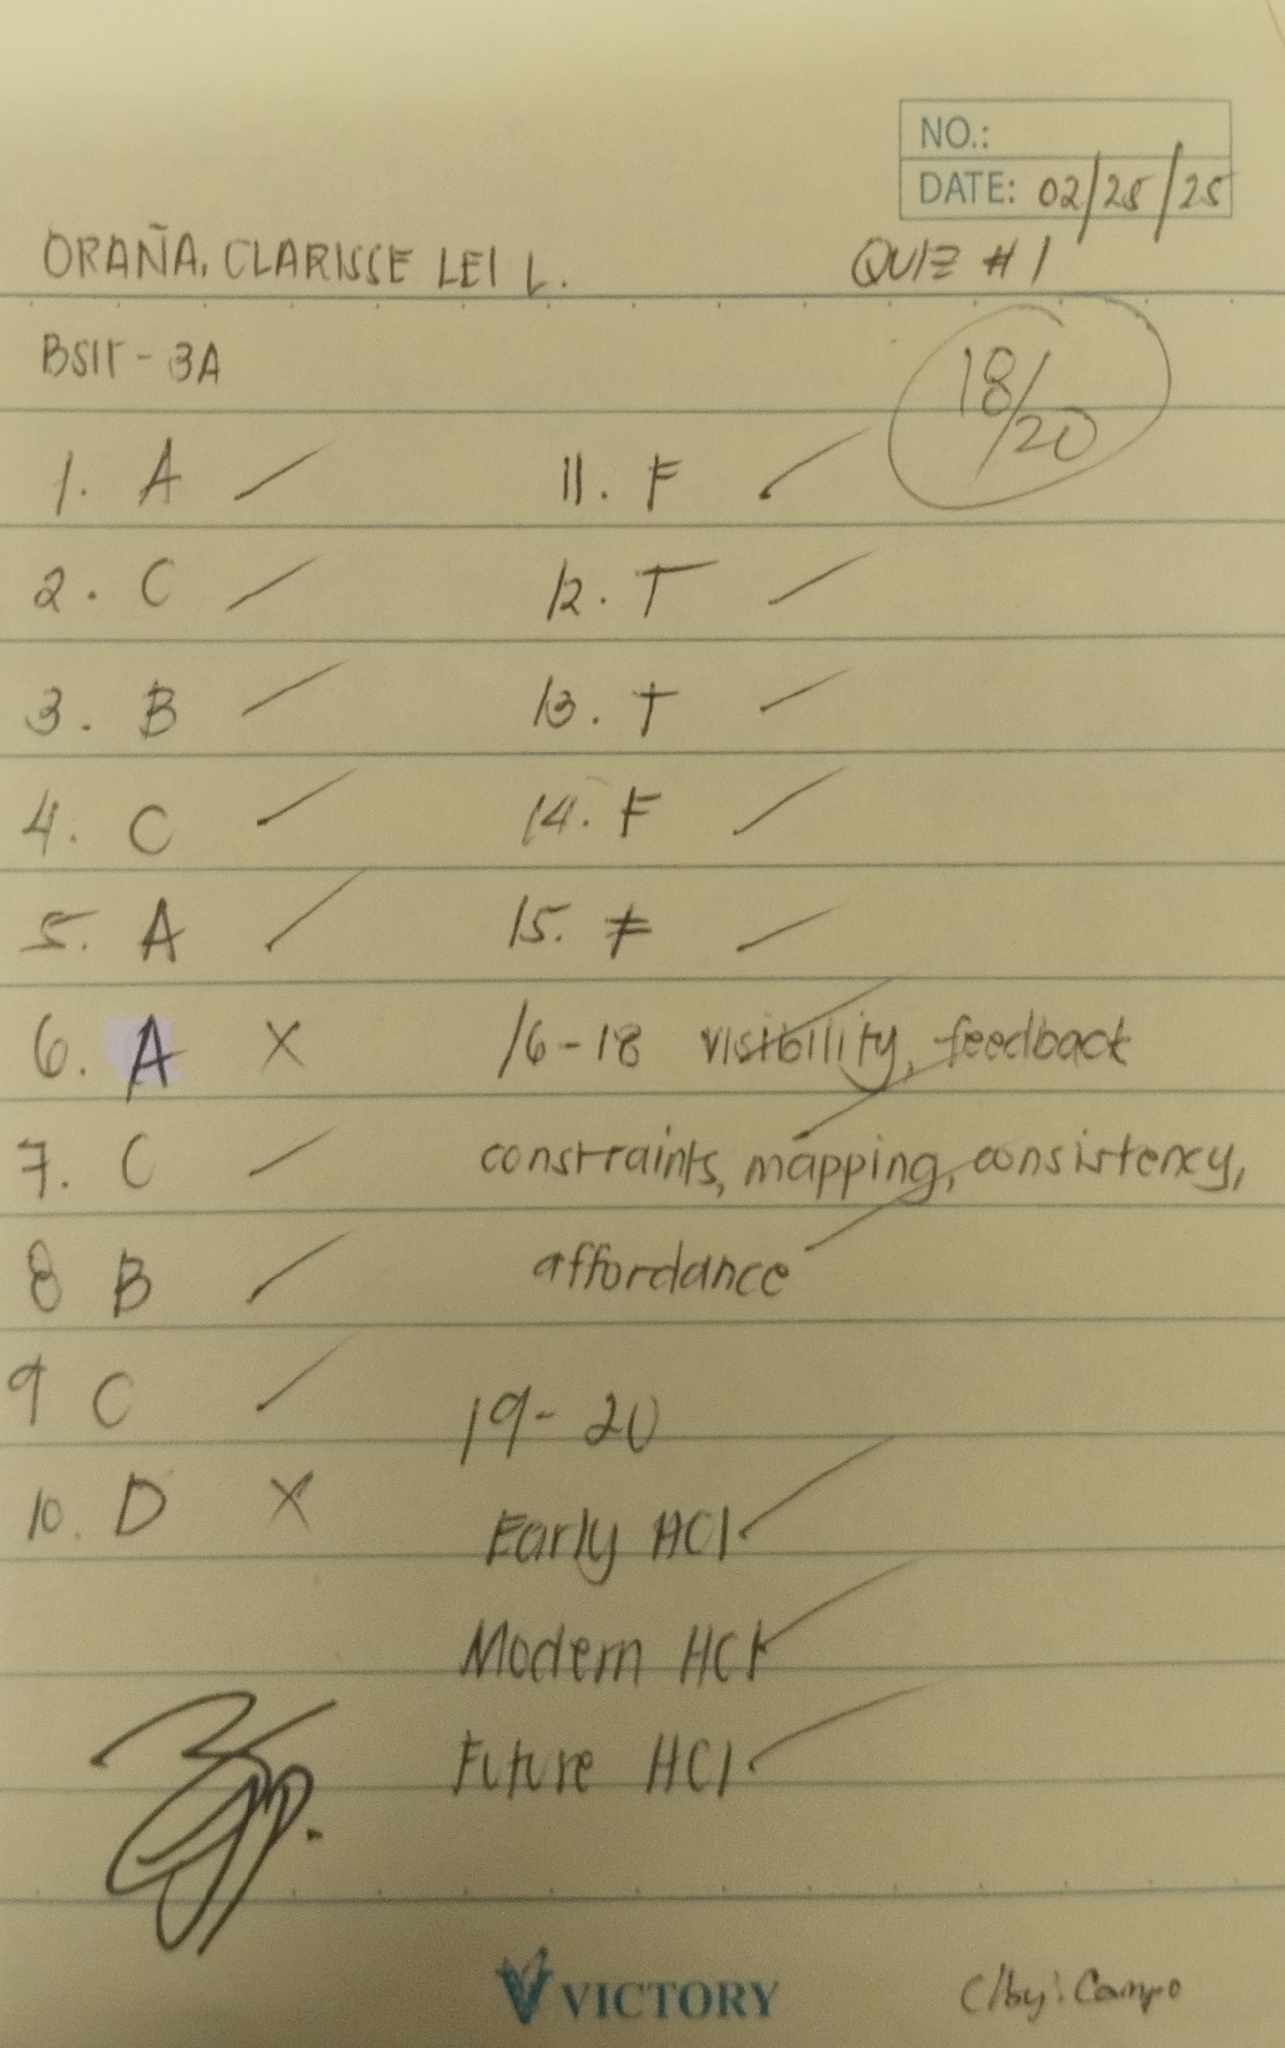 NO.:
DATE: 02/25/25
ORAÑA, CLARISSE LEI L. QUIZ #1
BSIT - 3A
18/20
1. A 11. F
2. C 12. T
3. B 13. T
4. C 14. F
5. A 15. F
6. A 16-18 visibility, feedback
7. C constraints, mapping, consistency,
8 B affordance
9 C 19-20
10. D
Early HCI
Modern HCI
Future HCI
VICTORY
C/by: Campo